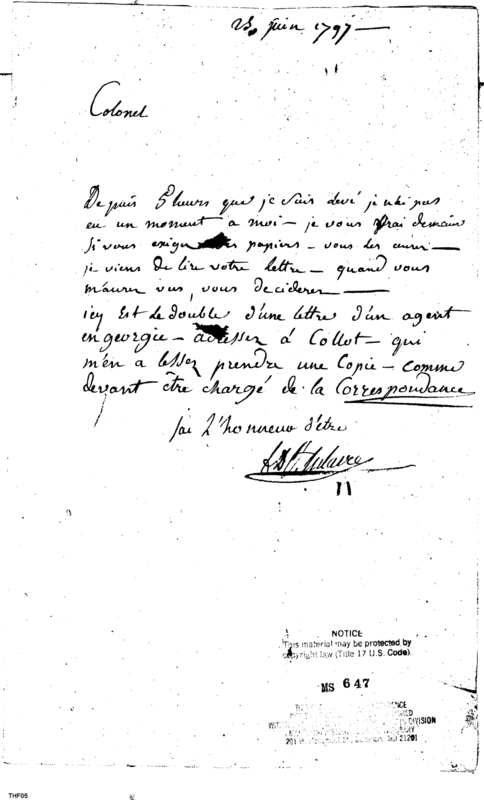 23 juin 1797 —
Colonel
Depuis 5 heurs que je suis levé je n'ai pas
eu un moment a moi — je vous verai demain
Si vous exiger les papiers — vous les aurer —
je viens de lire votre lettre — quand vous
m'aurer vus, vous deciderer —
icy Est le double d'une lettre d'un agent
en georgie — adresser à Collot — qui
m'en a lesser prendre une Copie — comme
devant être chargé de la Correspondance
j'ai L'honneur d'être
NOTICE
This material may be protected by
copyright law (Title 17 U.S. Code).
MS 647
DIVISION
21201
THF05